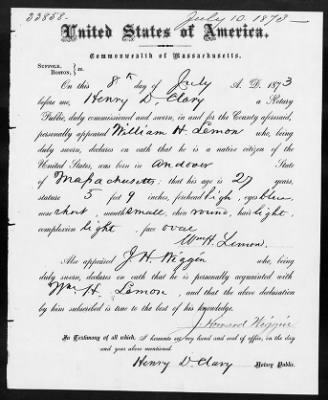 22858.
July 10. 1873
United States of America,
Commonwealth of Massachusetts.
SUFFOLK, BOSTON, } ss.
On this 8th day of July A. D. 1873
before me, Henry D. Clary a Notary
Public, duly commissioned and sworn, in and for the County aforesaid,
personally appeared William H Lemon who, being
duly sworn, declares on oath that he is a native citizen of the
United States, was born in Andover State
of Massachusetts; that his age is 27 years,
stature 5 feet 9 inches, forehead high, eyes blue,
nose short, mouth small, chin round, hair light,
complexion light, face oval
Wm H. Lemon.
Also appeared J. H. Wiggin who, being
duly sworn, declares on oath that he is personally acquainted with
Wm H. Lemon, and that the above declaration
by him subscribed is true to the best of his knowledge.
J. Howard Wiggin
In Testimony of all which, I hereunto set my hand and seal of office, on the day
and year above mentioned.
Henry D. Clary Notary Public.